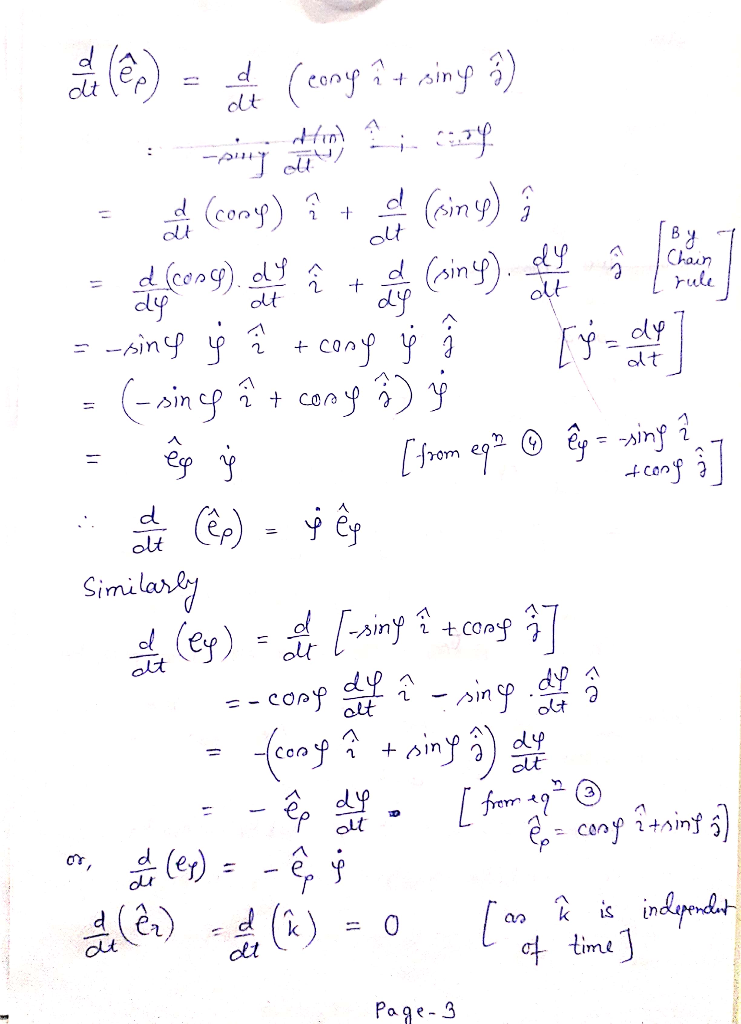 d/dt (ê_ρ) = d/dt (cosφ î + sinφ ĵ)
= d/dt (cosφ) î + d/dt (sinφ) ĵ
= d/dφ (cosφ). dφ/dt î + d/dφ (sinφ). dφ/dt ĵ [By Chain rule]
= -sinφ φ̇ î + cosφ φ̇ ĵ [φ̇ = dφ/dt]
= (-sinφ î + cosφ ĵ) φ̇
= ê_φ φ̇ [from eqⁿ ④ ê_φ = -sinφ î + cosφ ĵ]
∴ d/dt (ê_ρ) = φ̇ ê_φ
Similarly
d/dt (e_φ) = d/dt [-sinφ î + cosφ ĵ]
= -cosφ dφ/dt î - sinφ . dφ/dt ĵ
= -(cosφ î + sinφ ĵ) dφ/dt
= - ê_ρ dφ/dt . [from eqⁿ ③ ê_ρ = cosφ î + sinφ ĵ]
or, d/dt (e_φ) = - ê_ρ φ̇
d/dt (ê_z) = d/dt (k̂) = 0 [as k̂ is independent of time]
Page-3